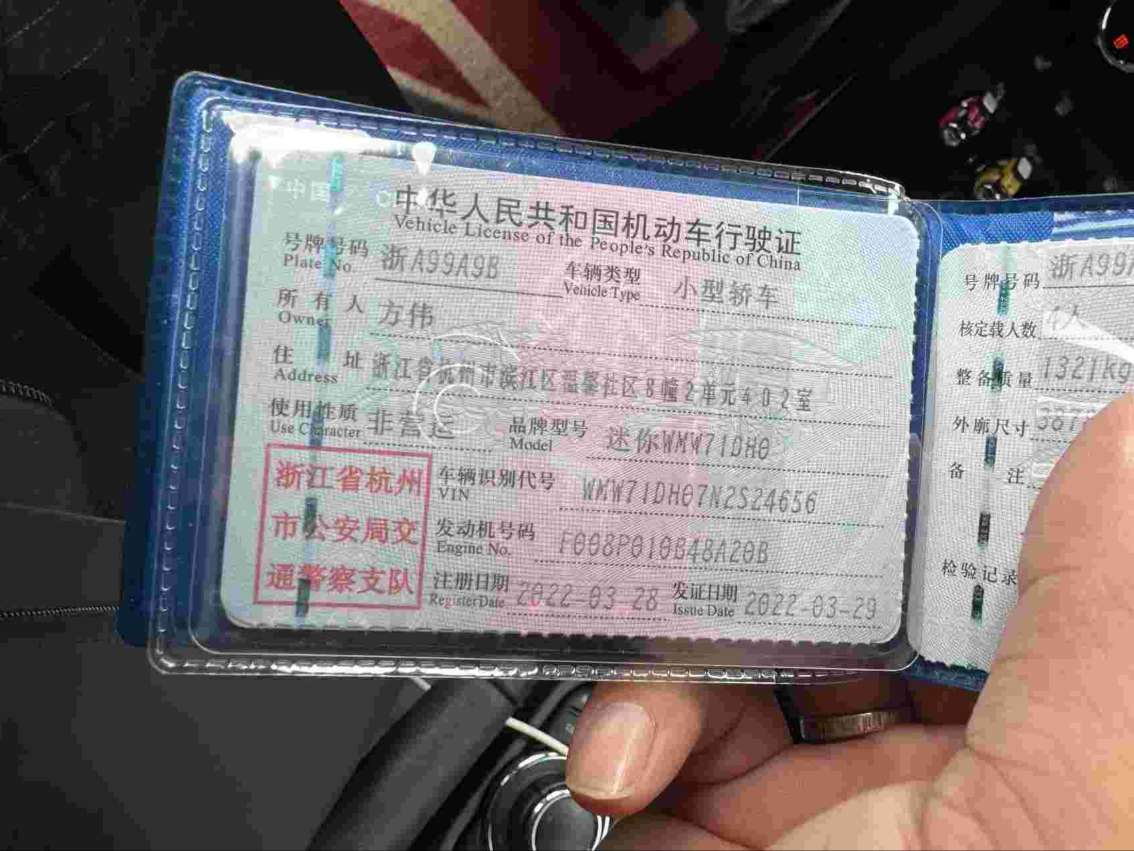 中国
中华人民共和国机动车行驶证
Vehicle License of the People's Republic of China
号牌号码 浙A99A9B 车辆类型 小型轿车
Plate No. Vehicle Type
所有人 方伟
Owner
住址 浙江省杭州市滨江区温馨社区8幢2单元402室
Address
使用性质 非营运 品牌型号 迷你WMW71DH0
Use Character Model
浙江省杭州
市公安局交
通警察支队
车辆识别代号 WMW71DH07N2S24656
VIN
发动机号码 F008P010B48A20B
Engine No.
注册日期 2022-03-28 发证日期 2022-03-29
Register Date Issue Date
号牌号码 浙A99A
核定载人数 4人
整备质量 1321kg
外廓尺寸 387
备注
检验记录